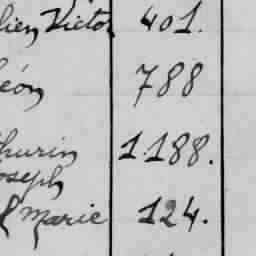 lien Victor 401.
éon 788
thurin 1.188.
oseph
Marie 124.